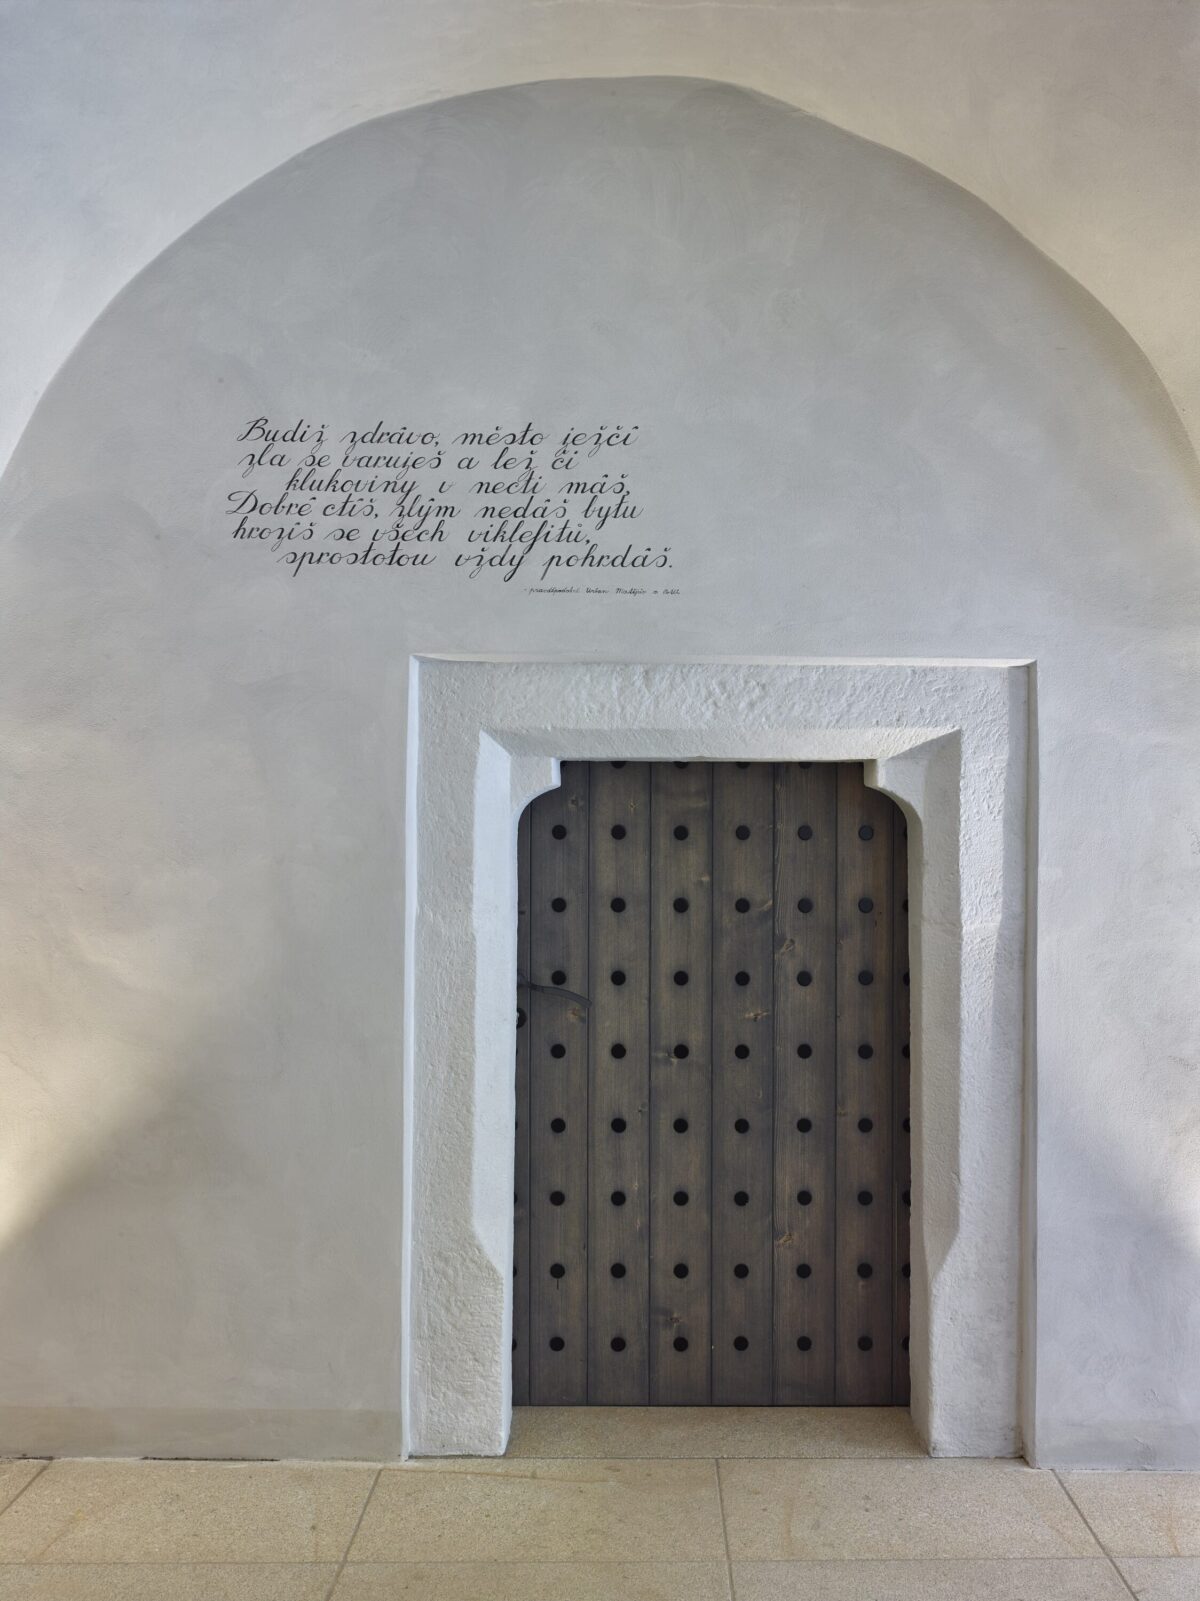 Budiž zdrávo, město ježčí
zla se varuješ a lež či
klukoviny v necti máš,
Dobré ctíš, zlým nedáš bytu
hrozíš se všech viklefitů,
sprostotou vždy pohrdáš.
- pravděpodobně Urban